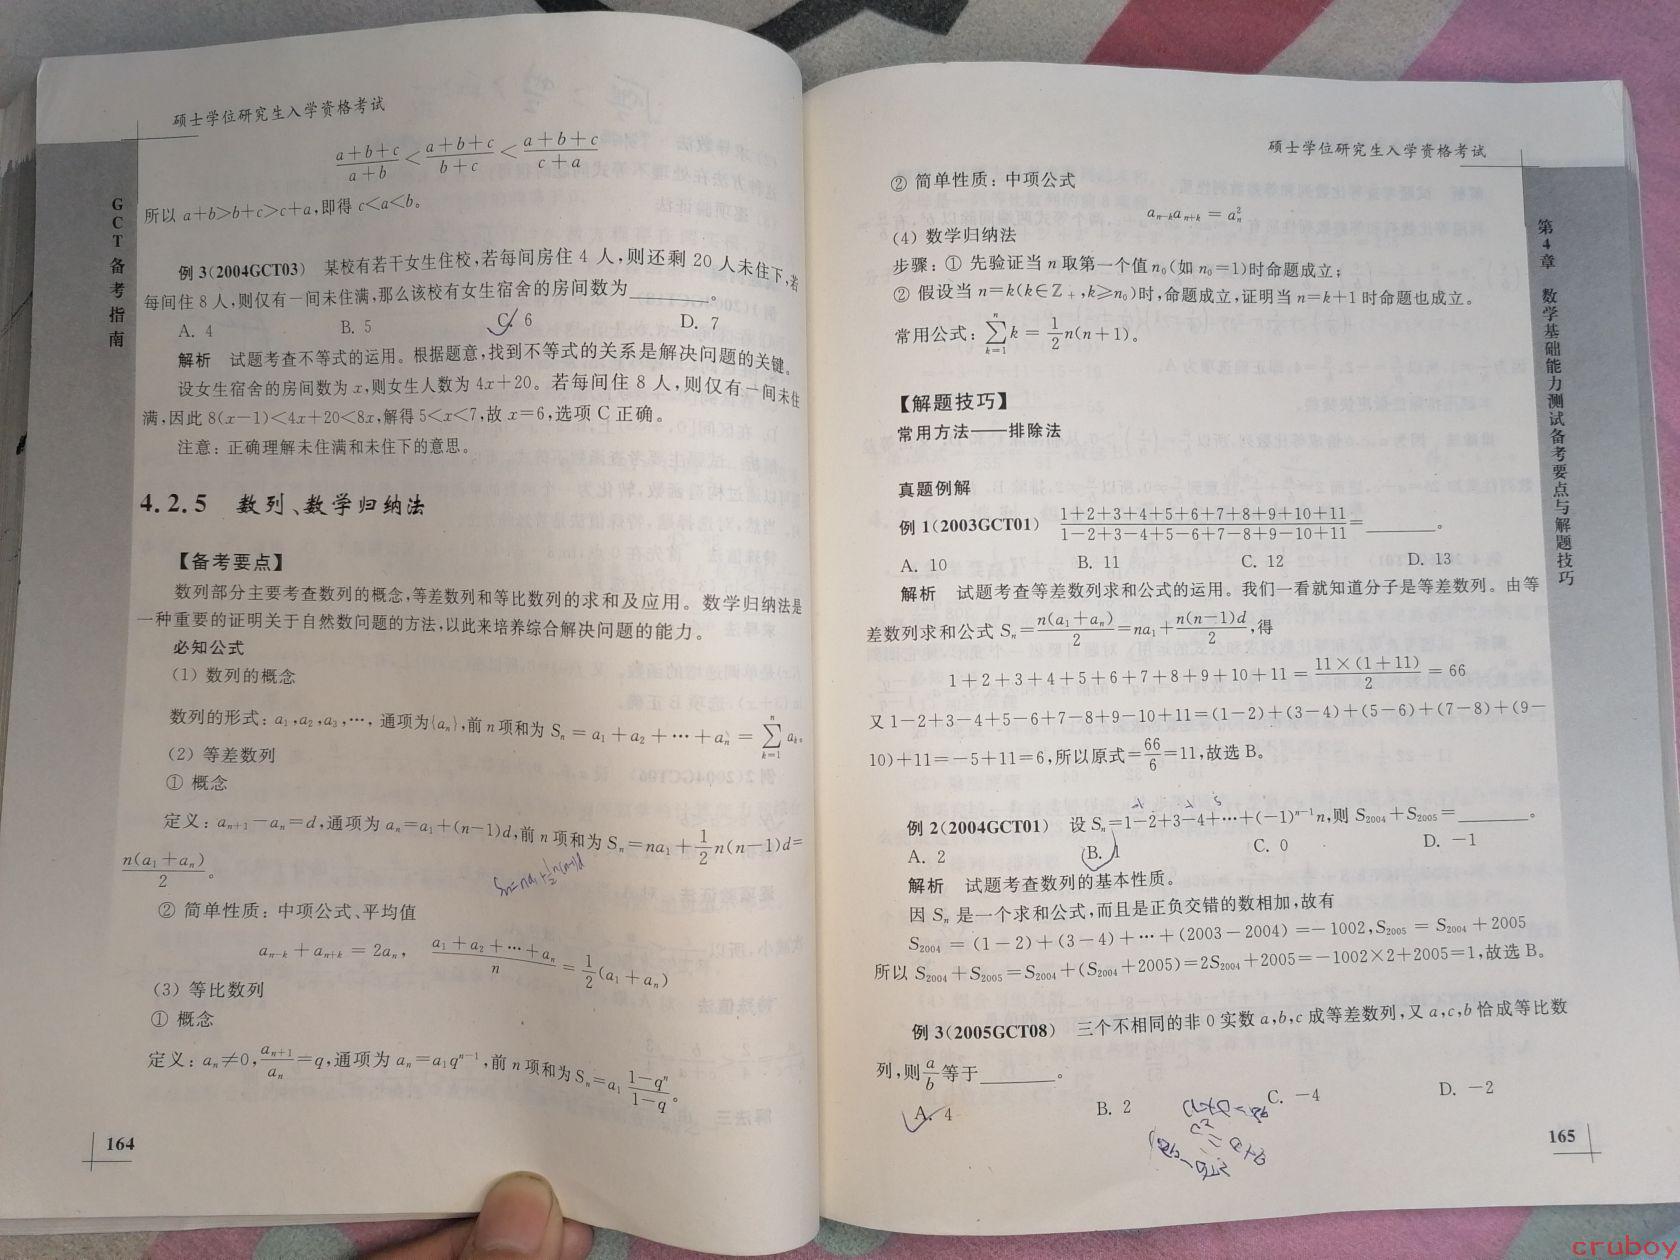 硕士学位研究生入学资格考试
GCT备考指南
(a+b+c)/(a+b) < (a+b+c)/(b+c) < (a+b+c)/(c+a)
所以 a+b>b+c>c+a,即得 c<a<b。
例 3(2004GCT03) 某校有若干女生住校,若每间房住 4 人,则还剩 20 人未住下,若
每间住 8 人,则仅有一间未住满,那么该校有女生宿舍的房间数为________。
A. 4 B. 5 C. 6 D. 7
解析 试题考查不等式的运用。根据题意,找到不等式的关系是解决问题的关键。
设女生宿舍的房间数为 x,则女生人数为 4x+20。若每间住 8 人,则仅有一间未住
满,因此 8(x-1)<4x+20<8x,解得 5<x<7,故 x=6,选项 C 正确。
注意:正确理解未住满和未住下的意思。
4.2.5 数列、数学归纳法
【备考要点】
数列部分主要考查数列的概念,等差数列和等比数列的求和及应用。数学归纳法是
一种重要的证明关于自然数问题的方法,以此来培养综合解决问题的能力。
必知公式
(1) 数列的概念
数列的形式:a₁,a₂,a₃,…,通项为{aₙ},前 n 项和为 Sₙ = a₁ + a₂ + … + aₙ = ∑ₖ₌₁ⁿ aₖ。
(2) 等差数列
① 概念
定义:aₙ₊₁-aₙ=d,通项为 aₙ=a₁+(n-1)d,前 n 项和为 Sₙ=na₁+1/2 n(n-1)d=
n(a₁+aₙ)/2。
Sₙ=na₁+1/2n(n-1)d
② 简单性质:中项公式、平均值
aₙ₋ₖ + aₙ₊ₖ = 2aₙ, (a₁+a₂+…+aₙ)/n = 1/2(a₁+aₙ)
(3) 等比数列
① 概念
定义:aₙ≠0,aₙ₊₁/aₙ=q,通项为 aₙ=a₁qⁿ⁻¹,前 n 项和为 Sₙ=a₁ (1-qⁿ)/(1-q)。
164
硕士学位研究生入学资格考试
第4章 数学基础能力测试备考要点与解题技巧
② 简单性质:中项公式
aₙ₋ₖaₙ₊ₖ = aₙ²
(4) 数学归纳法
步骤:① 先验证当 n 取第一个值 n₀(如 n₀=1)时命题成立;
② 假设当 n=k(k∈Z₊,k≥n₀)时,命题成立,证明当 n=k+1 时命题也成立。
常用公式:∑ₖ₌₁ⁿ k = 1/2 n(n+1)。
【解题技巧】
常用方法——排除法
真题例解
例 1(2003GCT01) (1+2+3+4+5+6+7+8+9+10+11)/(1-2+3-4+5-6+7-8+9-10+11)=________。
A. 10 B. 11 C. 12 D. 13
解析 试题考查等差数列求和公式的运用。我们一看就知道分子是等差数列。由等
差数列求和公式 Sₙ=n(a₁+aₙ)/2=na₁+n(n-1)d/2,得
1+2+3+4+5+6+7+8+9+10+11 = 11×(1+11)/2 = 66
又 1-2+3-4+5-6+7-8+9-10+11=(1-2)+(3-4)+(5-6)+(7-8)+(9-
10)+11=-5+11=6,所以原式=66/6=11,故选 B。
例 2(2004GCT01) 设 Sₙ=1-2+3-4+…+(-1)ⁿ⁻¹n,则 S₂₀₀₄+S₂₀₀₅=________。
A. 2 B. 1 C. 0 D. -1
解析 试题考查数列的基本性质。
因 Sₙ 是一个求和公式,而且是正负交错的数相加,故有
S₂₀₀₄ = (1-2)+(3-4)+…+(2003-2004)=-1002,S₂₀₀₅ = S₂₀₀₄+2005
所以 S₂₀₀₄+S₂₀₀₅=S₂₀₀₄+(S₂₀₀₄+2005)=2S₂₀₀₄+2005=-1002×2+2005=1,故选 B。
例 3(2005GCT08) 三个不相同的非 0 实数 a,b,c 成等差数列,又 a,c,b 恰成等比数
列,则 a/b 等于________。
A. 4 B. 2 C. -4 D. -2
165
cruboy